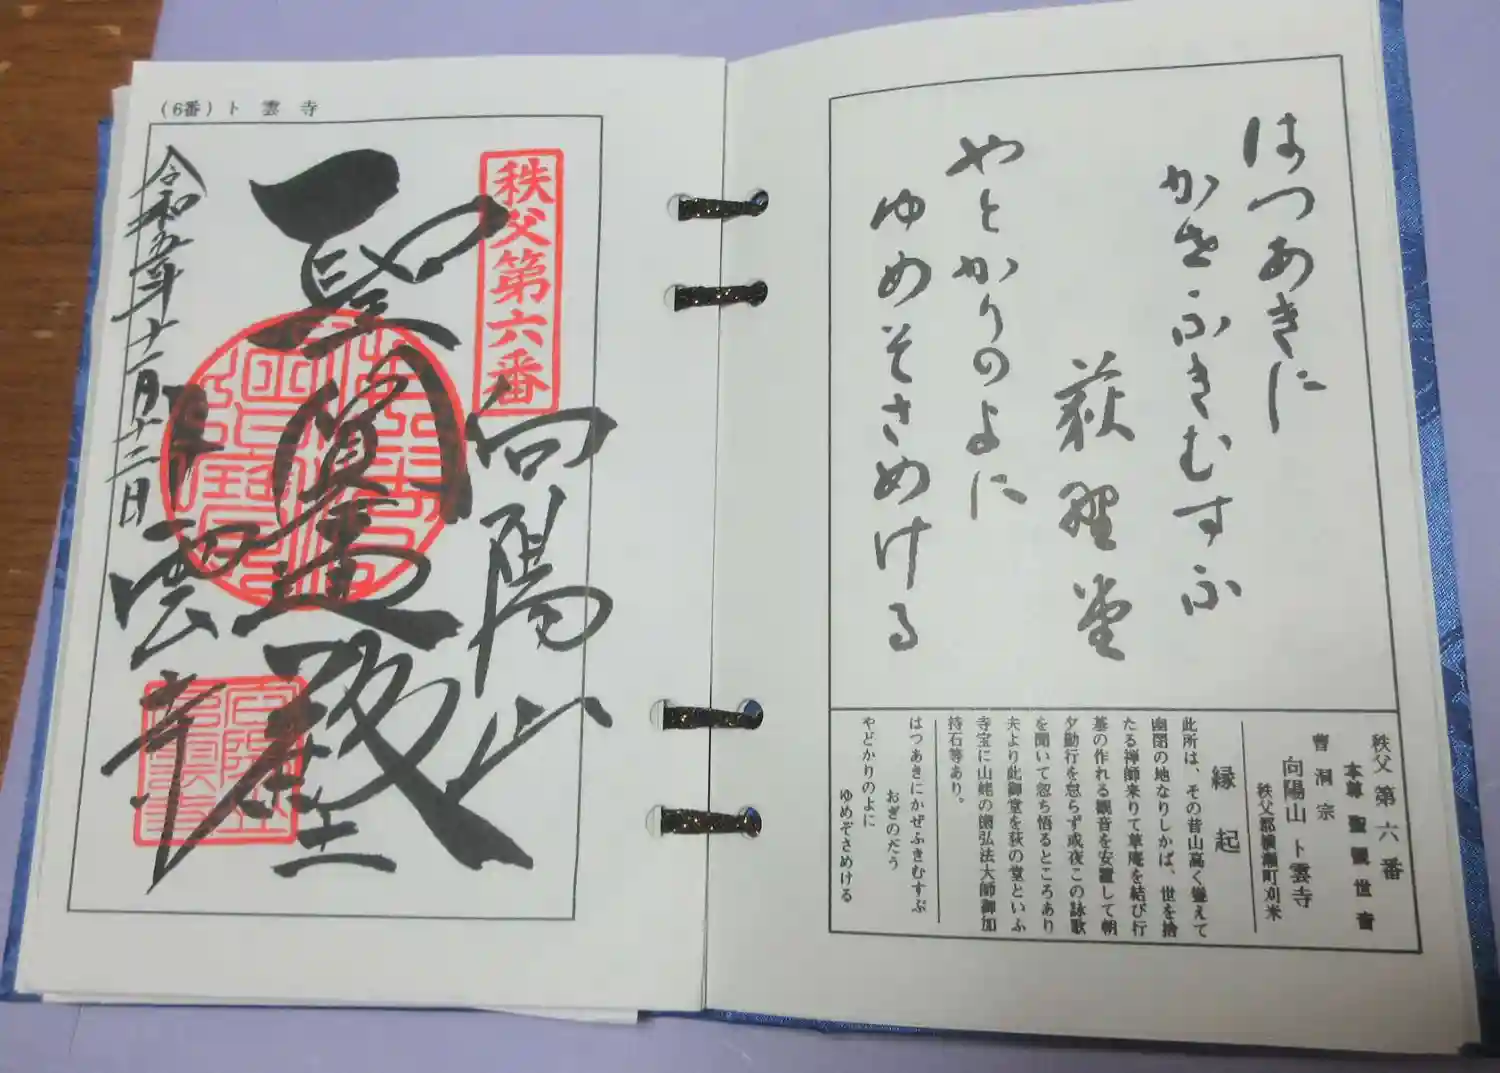 (6番) ト雲寺
秩父第六番
向陽山
聖
殿
令和五年十一月十二日
卜雲寺
はつあきに
かぜふきむすふ
荻野堂
やとかりのよに
ゆめそさめける
秩父第六番
本尊 聖観世音
曹洞宗
向陽山 ト雲寺
秩父郡横瀬町刈米
縁起
此所は、その昔山高く聳えて
幽閉の地なりしかば、世を捨
たる禅師来りて草庵を結び行
基の作れる観音を安置して朝
夕勤行を怠らず或夜この詠歌
を聞いて忽ち悟るところあり
夫より此御堂を荻の堂といふ
寺宝に山姥の歯弘法大師御加
持石等あり。
はつあきにかぜふきむすぶ
おぎのだう
やどかりのよに
ゆめぞさめける